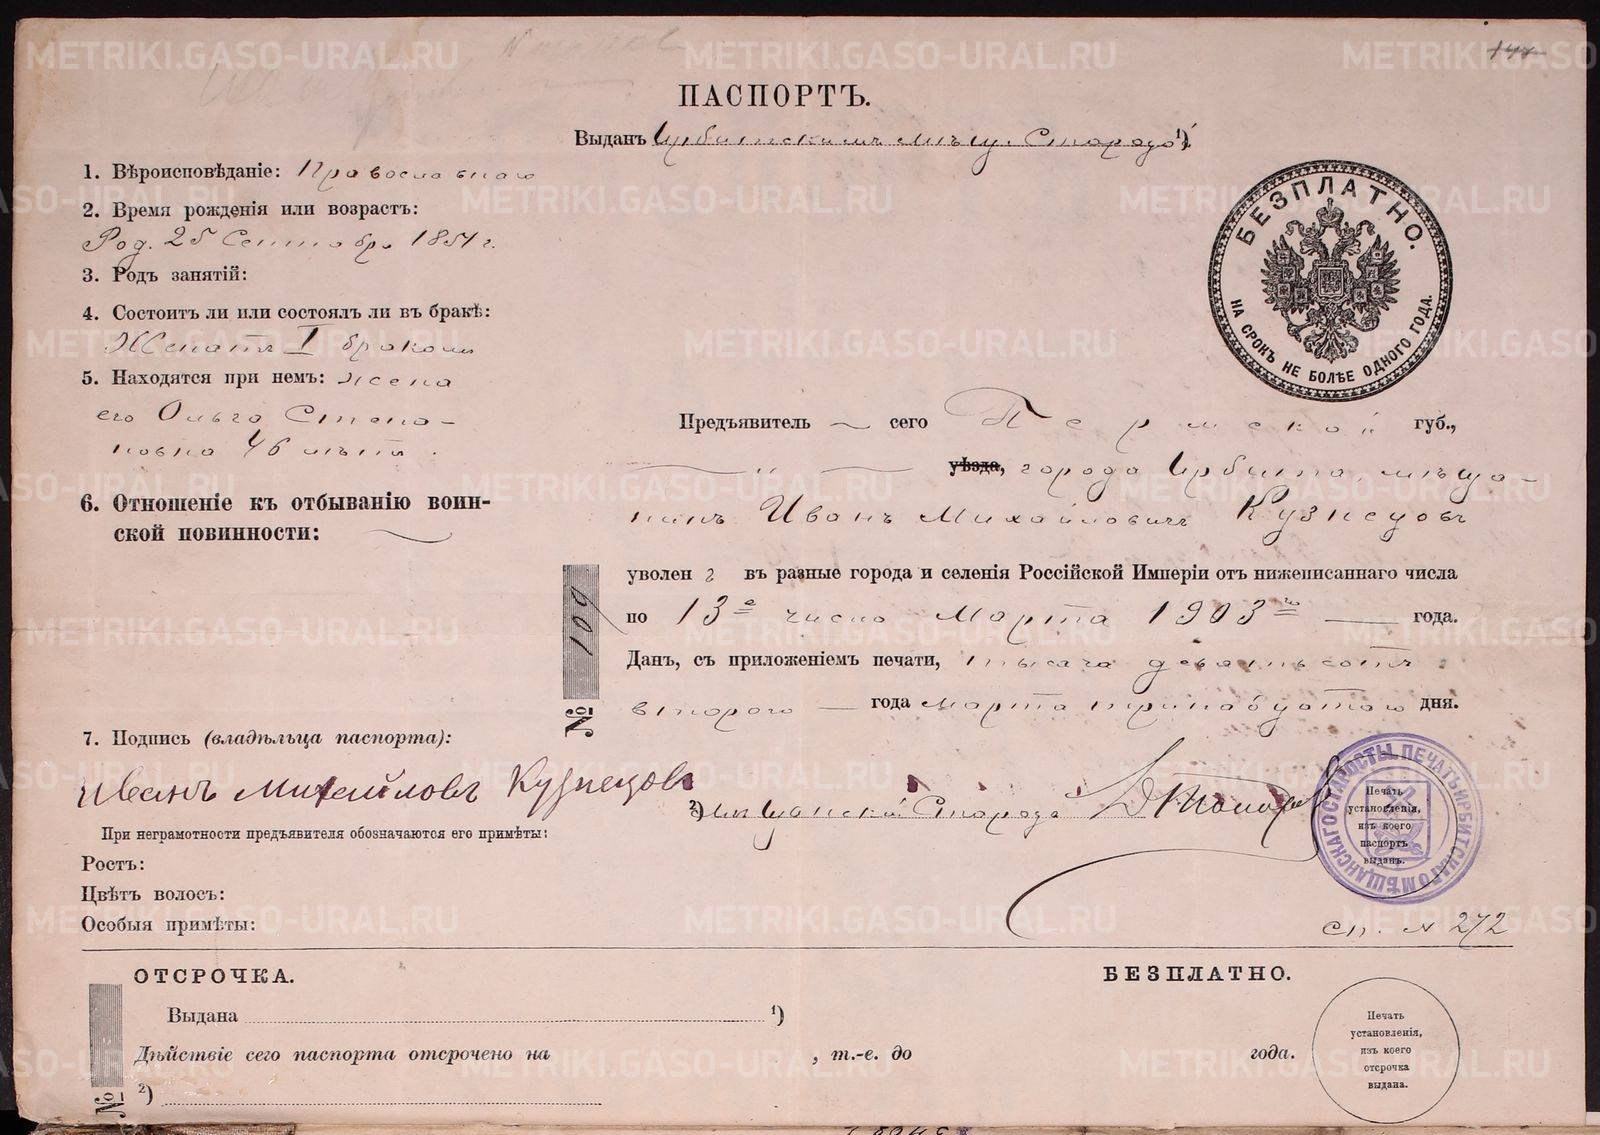 ПАСПОРТЪ.
Выданъ Ирбитскимъ мѣщ. Старосто 1)
1. Вѣроисповѣданіе: Православнаго
2. Время рожденія или возрастъ:
Род. 25 Сентября 1851 г.
3. Родъ занятій:
4. Состоитъ ли или состоялъ ли въ бракѣ:
Женатъ I бракомъ
5. Находятся при немъ: жена
его Ольга Степа-
новна 46 лѣтъ.
6. Отношеніе къ отбыванію воин-
ской повинности:
БЕЗПЛАТНО.
НА СРОКЪ НЕ БОЛѢЕ ОДНОГО ГОДА.
Предъявитель сего Пермской губ.,
уѣзда, города Ирбита мѣща-
нинъ Иванъ Михайловичъ Кузнецовъ
уволен въ разные города и селенія Россійской Имперіи отъ нижеписаннаго числа
по 13е число Марта 1903го года.
Данъ, съ приложеніемъ печати, тысяча девятьсотъ
второго года марта тринадцатаго дня.
№ 109
7. Подпись (владѣльца паспорта):
Иванъ Михайловъ Кузнецовъ
2) Мѣщанскій Староста
ПЕЧАТЬ ИРБИТСКАГО МѢЩАНСКАГО СТАРОСТЫ
Печать
установленія,
изъ коего
паспортъ
выданъ.
При неграмотности предъявителя обозначаются его примѣты:
Ростъ:
Цвѣтъ волосъ:
Особыя примѣты:
сп. № 272
ОТСРОЧКА.
БЕЗПЛАТНО.
Выдана 1)
Дѣйствіе сего паспорта отсрочено на , т.-е. до года.
2)
№
Печать
установленія,
изъ коего
отсрочка
выдана.
METRIKI.GASO-URAL.RU